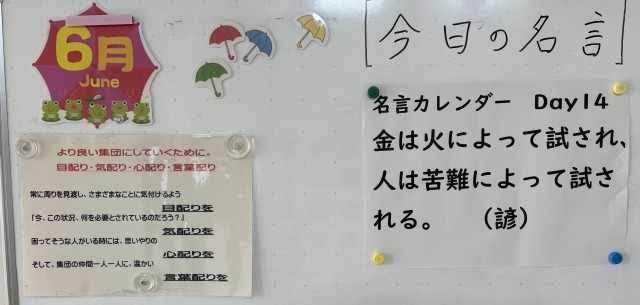 6月
June
より良い集団にしていくために。
目配り・気配り・心配り・言葉配り
常に周りを見渡し、さまざまなことに気付けるよう
目配りを
「今、この状況、何を必要とされているのだろう？」
気配りを
困ってそうな人がいる時には、思いやりの
心配りを
そして、集団の仲間一人一人に、温かい
言葉配りを
[今日の名言]
名言カレンダー　Day14
金は火によって試され、
人は苦難によって試さ
れる。　（諺）